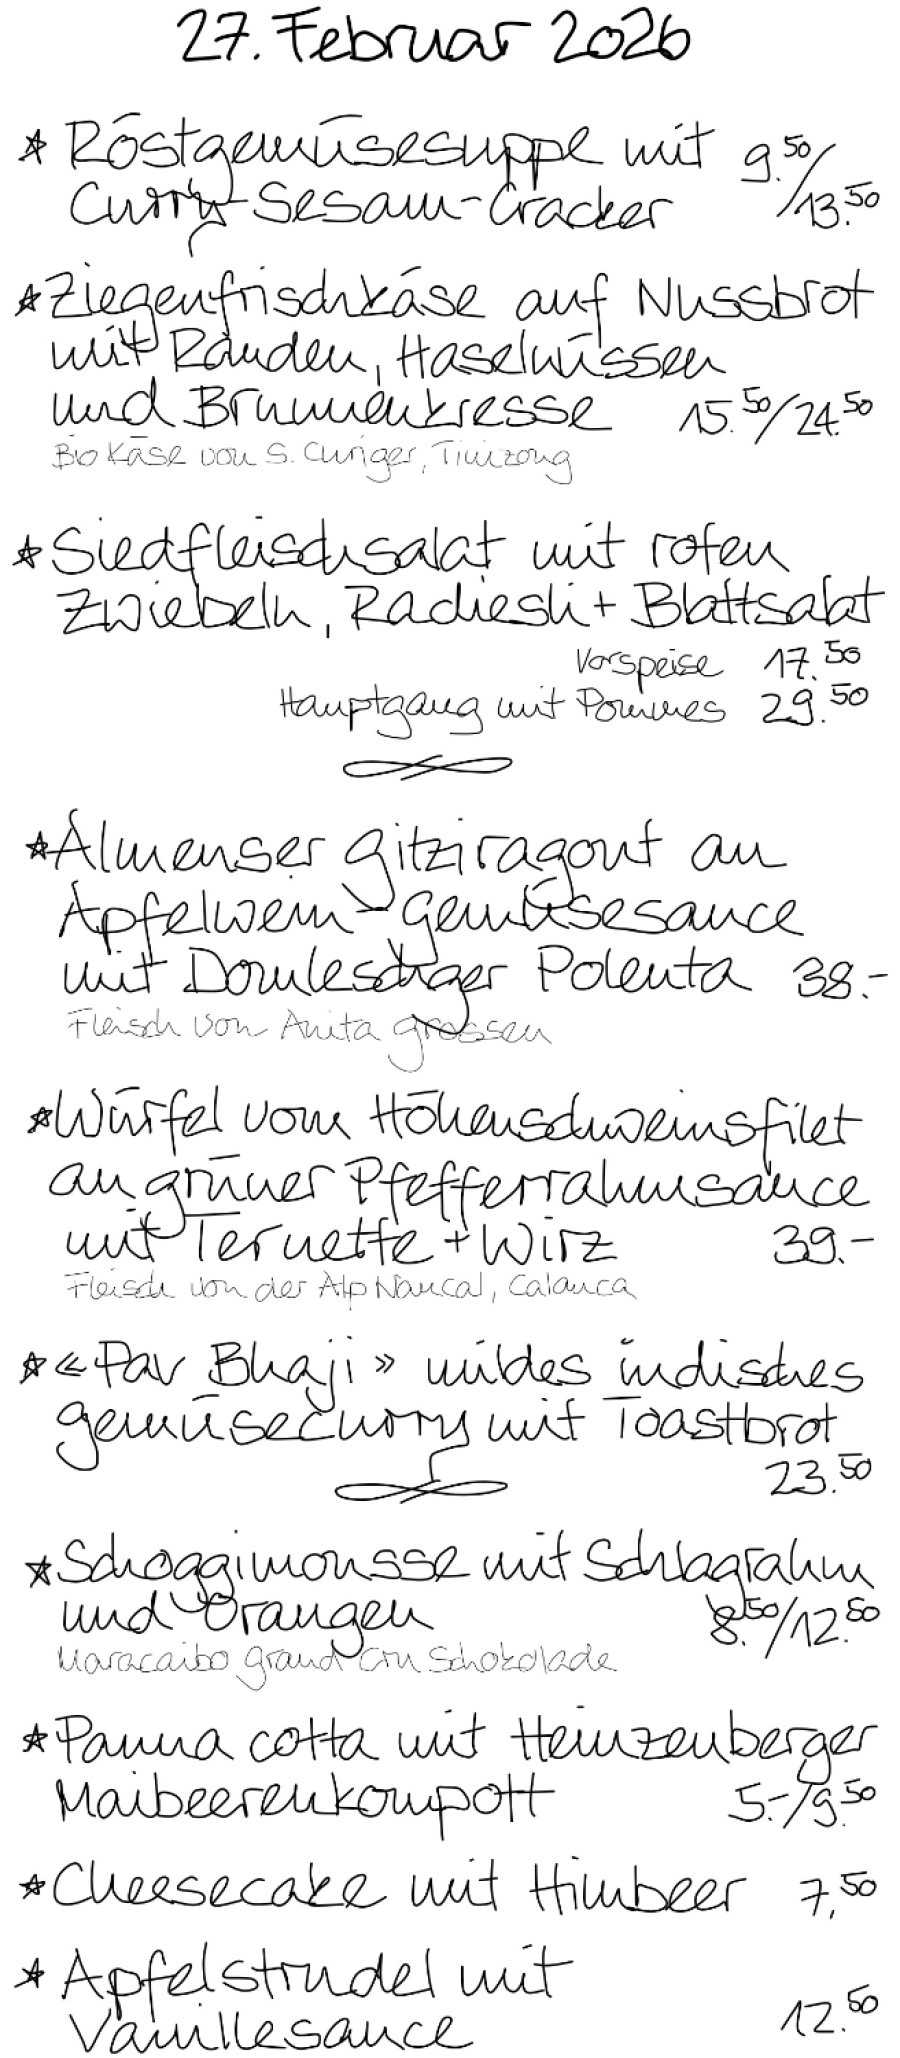 27. Februar 2026
* Röstgemüsesuppe mit 9.50/
Curry-Sesam-Cracker 13.50
* Ziegenfrischkäse auf Nussbrot
mit Randen, Haselnüssen
und Brunnenkresse 15.50/24.50
Bio Käse von S. Curiger, Tinizong
* Siedfleischsalat mit roten
Zwiebeln, Radiesli + Blattsalat
Vorspeise 17.50
Hauptgang mit Pommes 29.50
* Almenser Gitziragout an
Apfelwein-Gemüsesauce
mit Domleschger Polenta 38.-
Fleisch von Anita Grossen
* Würfel vom Höhenschweinsfilet
an grüner Pfefferrahmsauce
mit Ternette + Wirz 39.-
Fleisch von der Alp Naucal, Calanca
* «Pav Bhaji» mildes indisches
Gemüsecurry mit Toastbrot
23.50
* Schoggimousse mit Schlagrahm
und Orangen 8.50/12.50
Maracaibo Grand Cru Schokolade
* Panna cotta mit Heinzenberger
Maibeerenkompott 5.-/9.50
* Cheesecake mit Himbeer 7,50
* Apfelstrudel mit
Vanillesauce 12.50